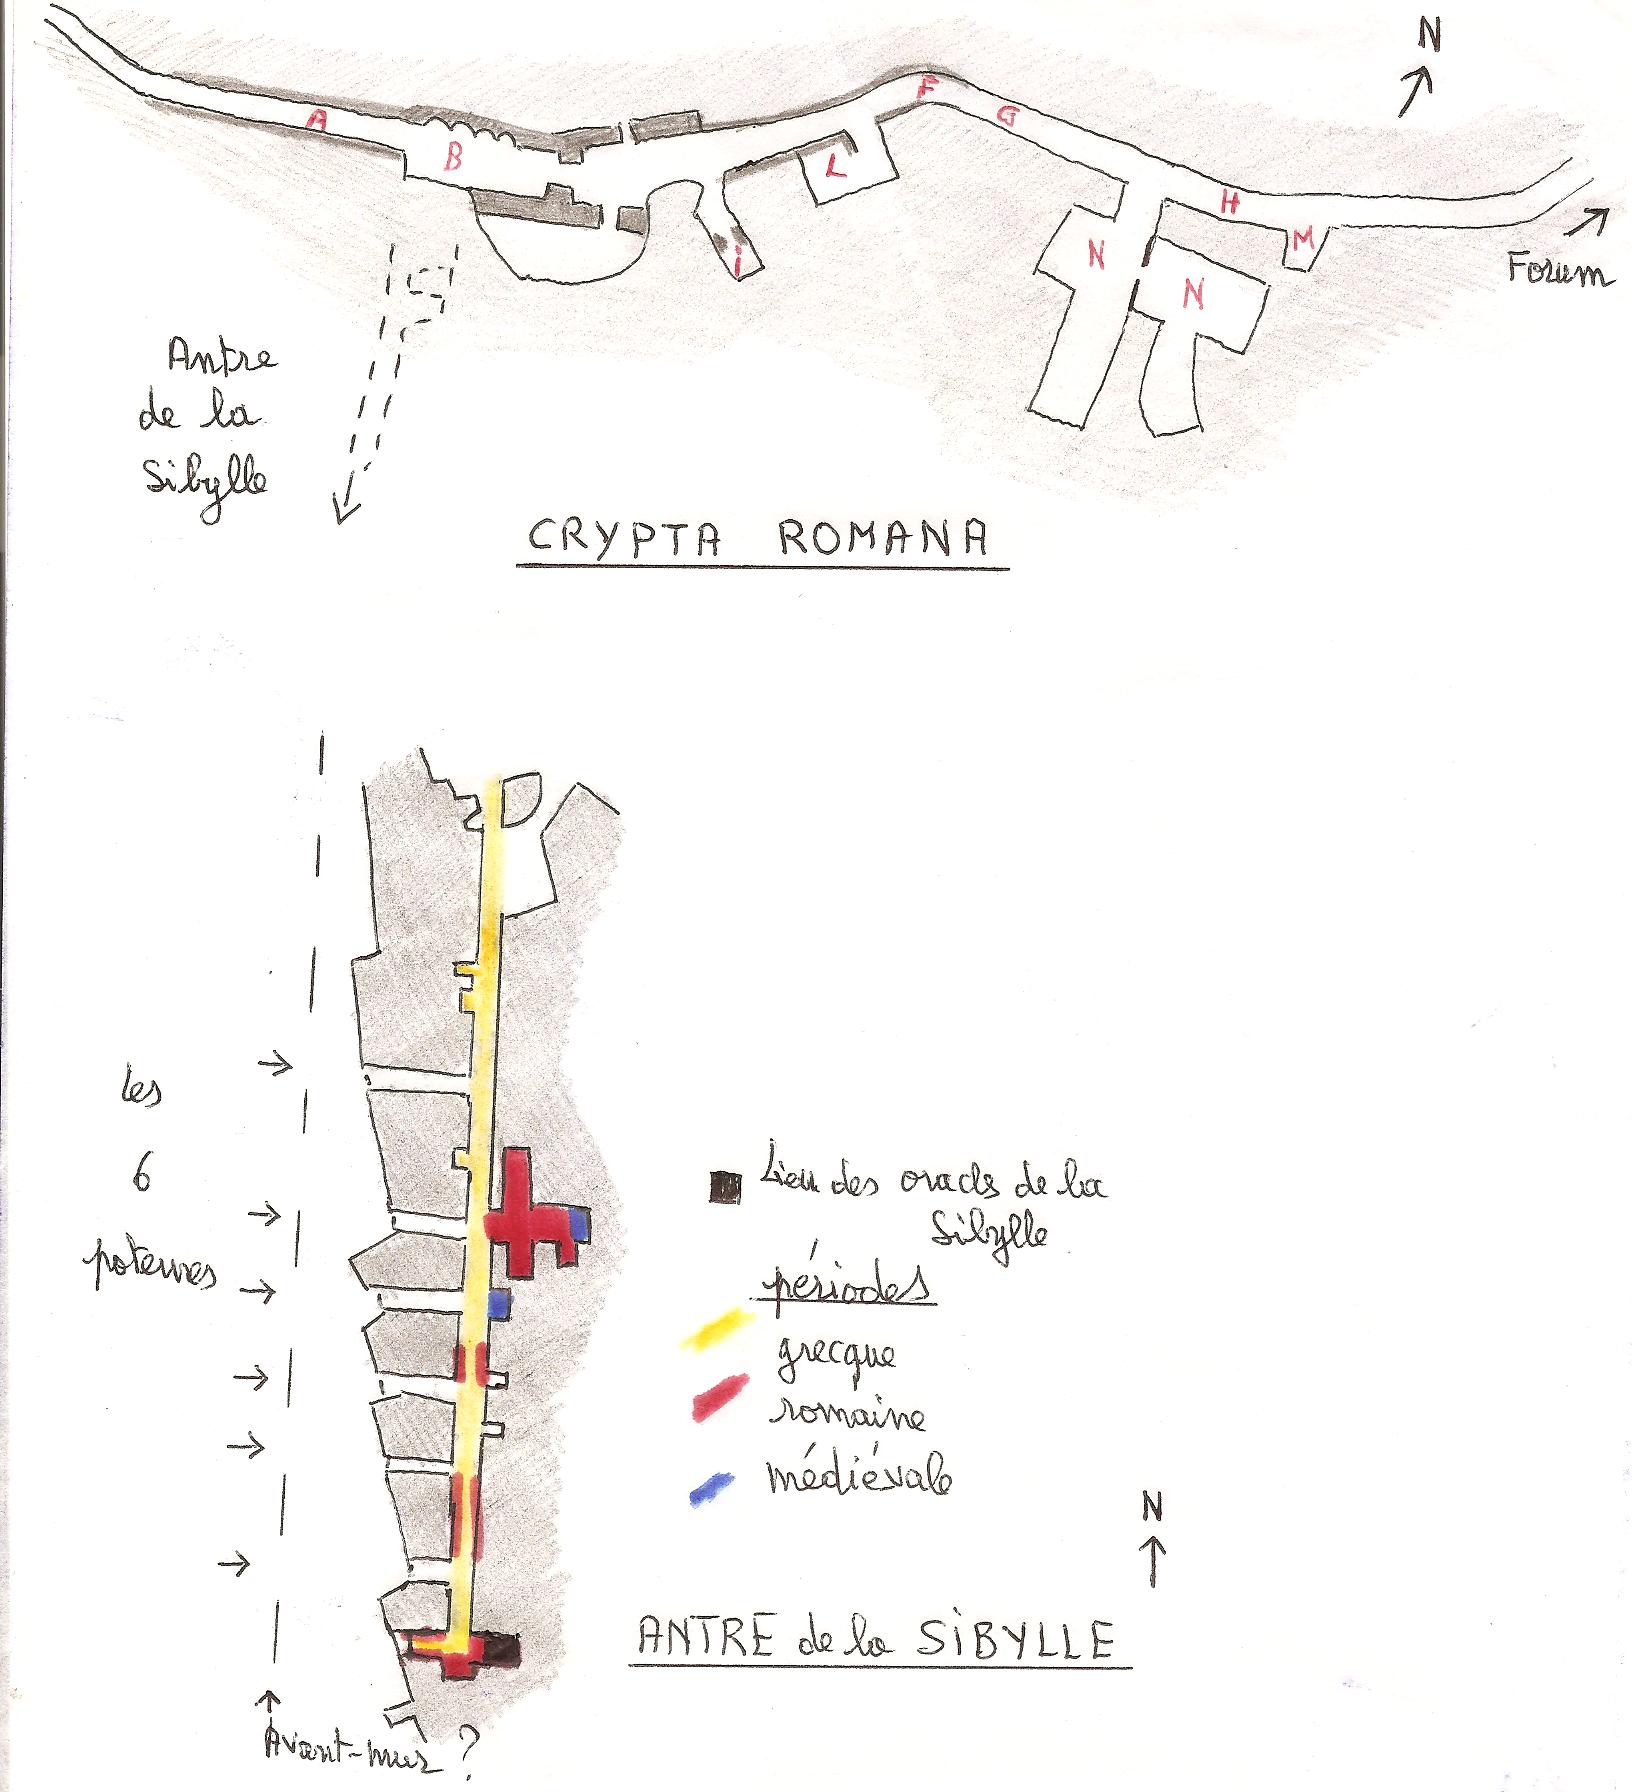 N
A
B
F
G
L
i
H
M
N
N
Forum
Antre
de la
Sibylle
CRYPTA ROMANA
les
6
poternes
Lieu des oracls de la
Sibylle
périodes
grecque
romaine
médiévale
N
ANTRE de la SIBYLLE
Avant-mur ?